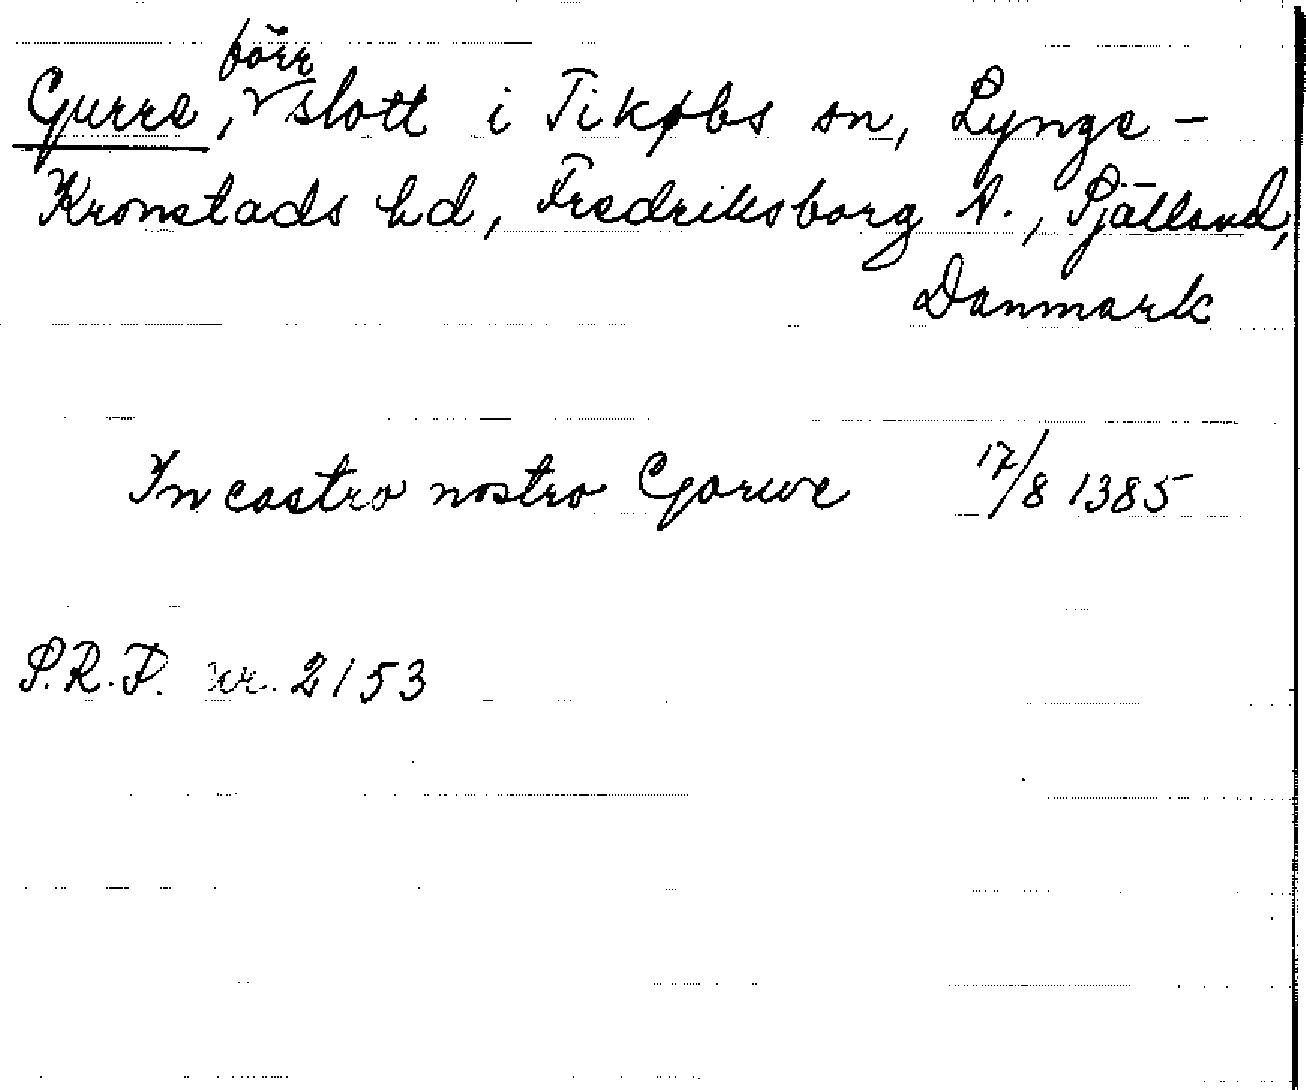 Gurre, förr slott i Tikøbs sn, Lynge-
Kronstads hd, Fredriksborg A., Själland,
Danmark
In castro nostro Gorwe 17/8 1385
S.R.P. nr. 2153